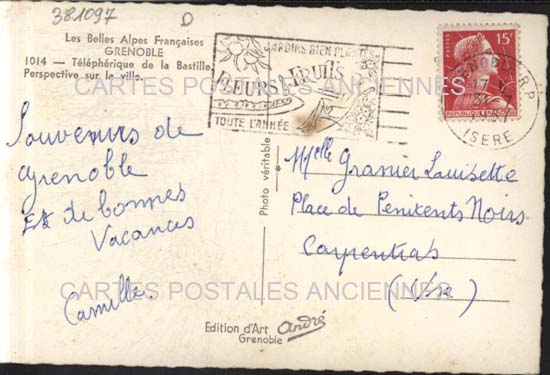 381097
D
Les Belles Alpes Françaises
GRENOBLE
1014 — Téléphérique de la Bastille
Perspective sur la ville.
JARDINS BIEN PLANTÉS
FLEURS & FRUITS
TOUTE L'ANNÉE
15F
RÉPUBLIQUE FRANÇAISE
GRENOBLE R.P.
17
ISERE
CARTES POSTALES ANCIENNES
Souvenirs de
Grenoble
Et de bonnes
Vacances
Camille.
Photo véritable
Melle Granier Louisette
Place de Pénitents Noirs
Carpentras
(Vse)
CARTES POSTALES ANCIENNES
Edition d'Art André
Grenoble